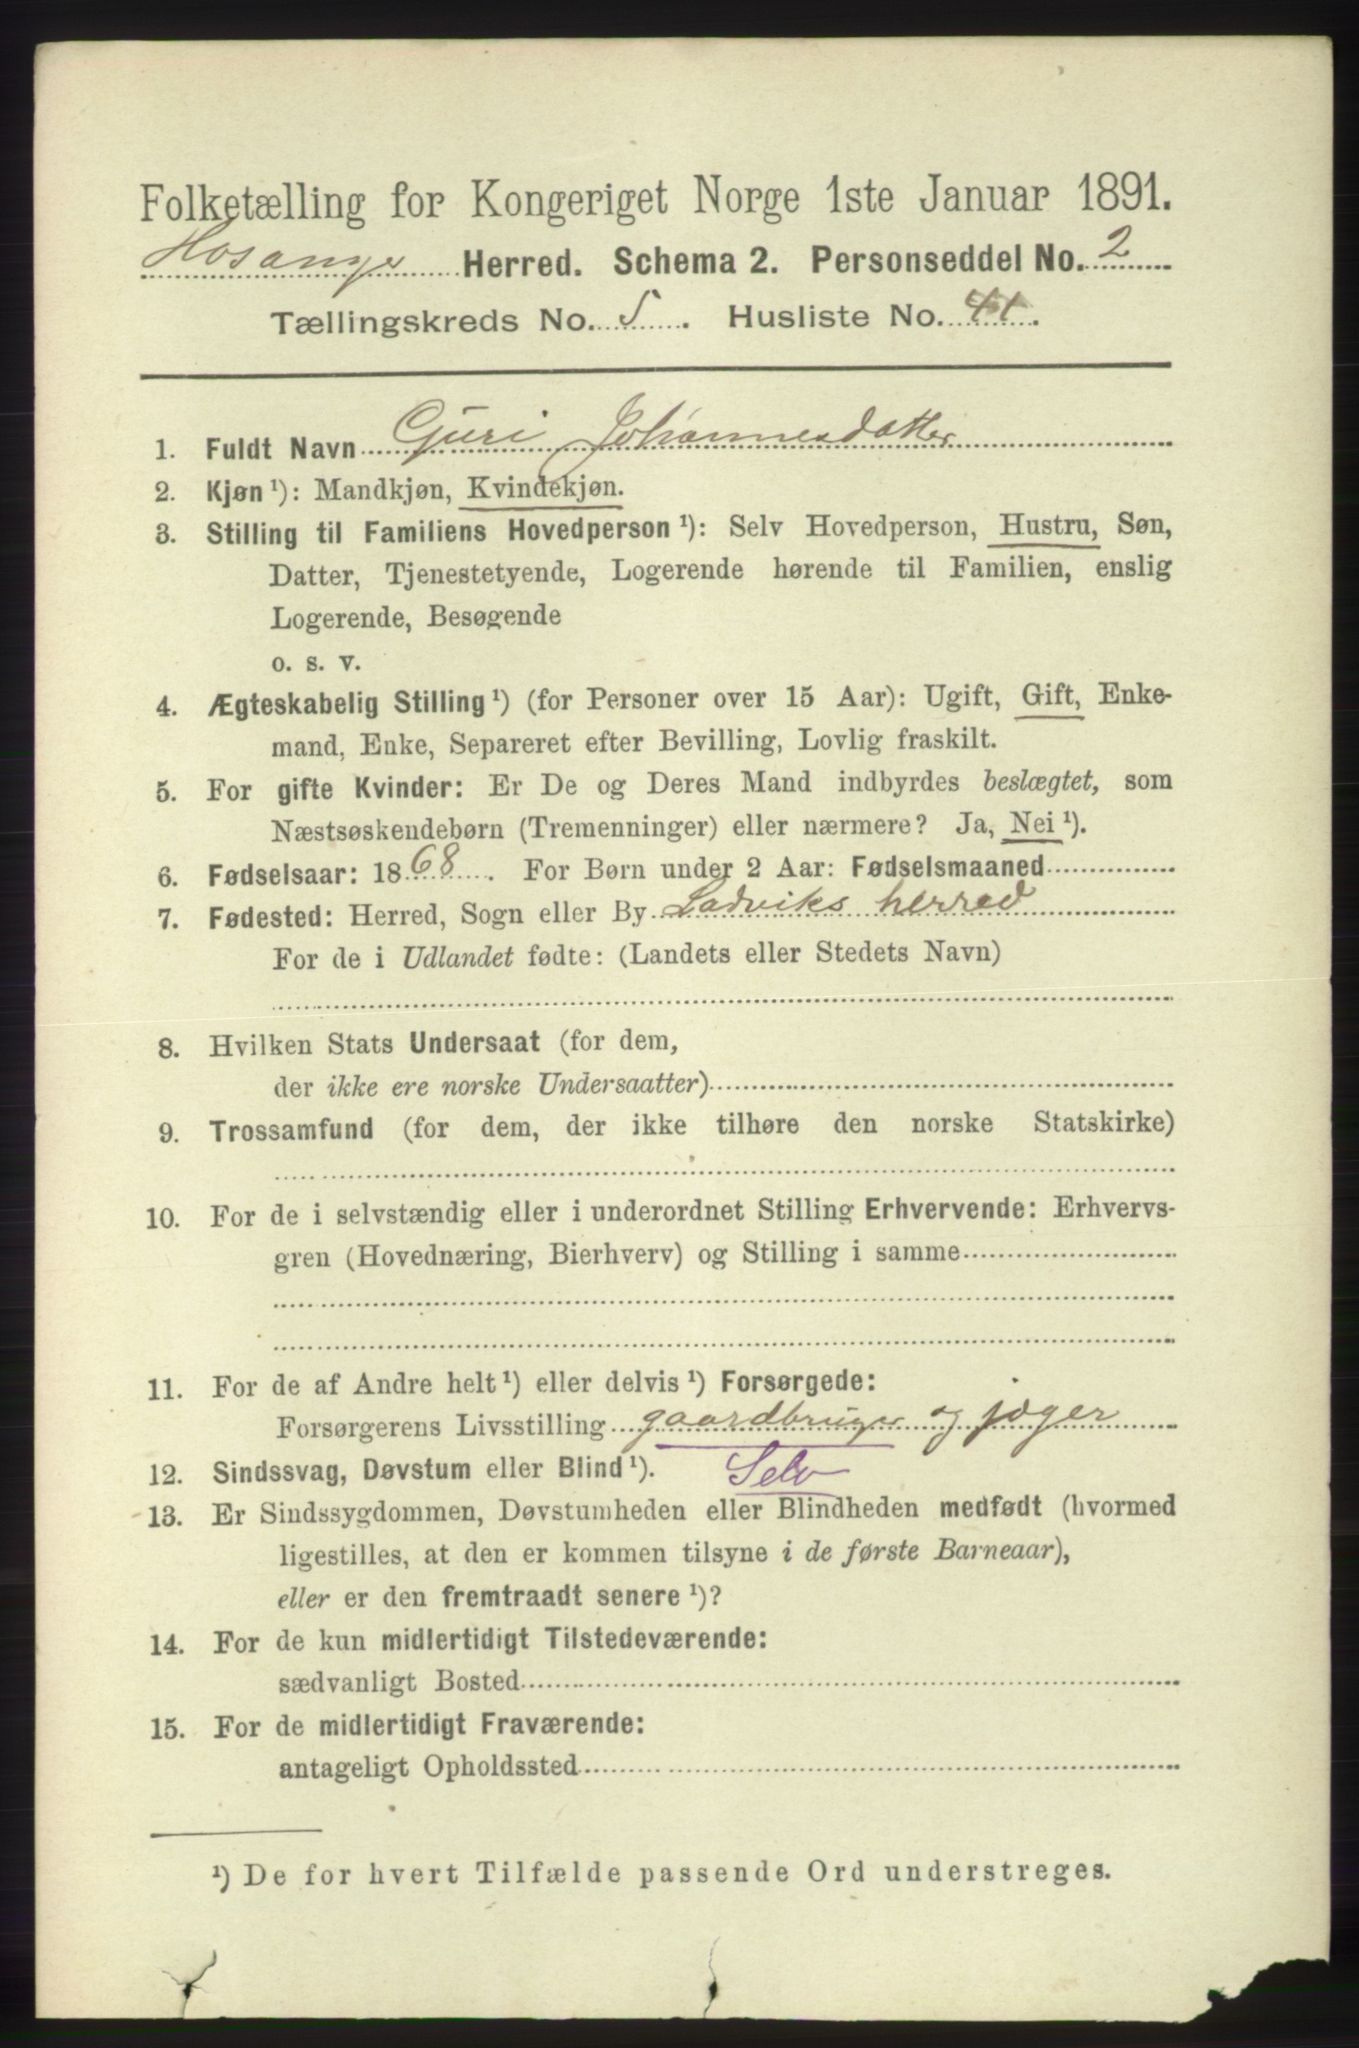 Folketælling for Kongeriget Norge 1ste Januar 1891.
Hosanger Herred. Schema 2. Personseddel No. 2
Tællingskreds No. 5. Husliste No. 41.
1. Fuldt Navn Guri Johannesdatter
2. Kjøn ¹): Mandkjøn, Kvindekjøn.
3. Stilling til Familiens Hovedperson ¹): Selv Hovedperson, Hustru, Søn,
Datter, Tjenestetyende, Logerende hørende til Familien, enslig
Logerende, Besøgende
o. s. v.
4. Ægteskabelig Stilling ¹) (for Personer over 15 Aar): Ugift, Gift, Enke-
mand, Enke, Separeret efter Bevilling, Lovlig fraskilt.
5. For gifte Kvinder: Er De og Deres Mand indbyrdes beslægtet, som
Næstsøskendebørn (Tremenninger) eller nærmere? Ja, Nei ¹).
6. Fødselsaar: 1868. For Børn under 2 Aar: Fødselsmaaned
7. Fødested: Herred, Sogn eller By Ladviks herred
For de i Udlandet fødte: (Landets eller Stedets Navn)
8. Hvilken Stats Undersaat (for dem,
der ikke ere norske Undersaatter)
9. Trossamfund (for dem, der ikke tilhøre den norske Statskirke)
10. For de i selvstændig eller i underordnet Stilling Erhvervende: Erhvervs-
gren (Hovednæring, Bierhverv) og Stilling i samme
11. For de af Andre helt ¹) eller delvis ¹) Forsørgede:
Forsørgerens Livsstilling gaardbruger og jæger
12. Sindssvag, Døvstum eller Blind ¹). Selv
13. Er Sindssygdommen, Døvstumheden eller Blindheden medfødt (hvormed
ligestilles, at den er kommen tilsyne i de første Barneaar),
eller er den fremtraadt senere ¹)?
14. For de kun midlertidigt Tilstedeværende:
sædvanligt Bosted
15. For de midlertidigt Fraværende:
antageligt Opholdssted
¹) De for hvert Tilfælde passende Ord understreges.